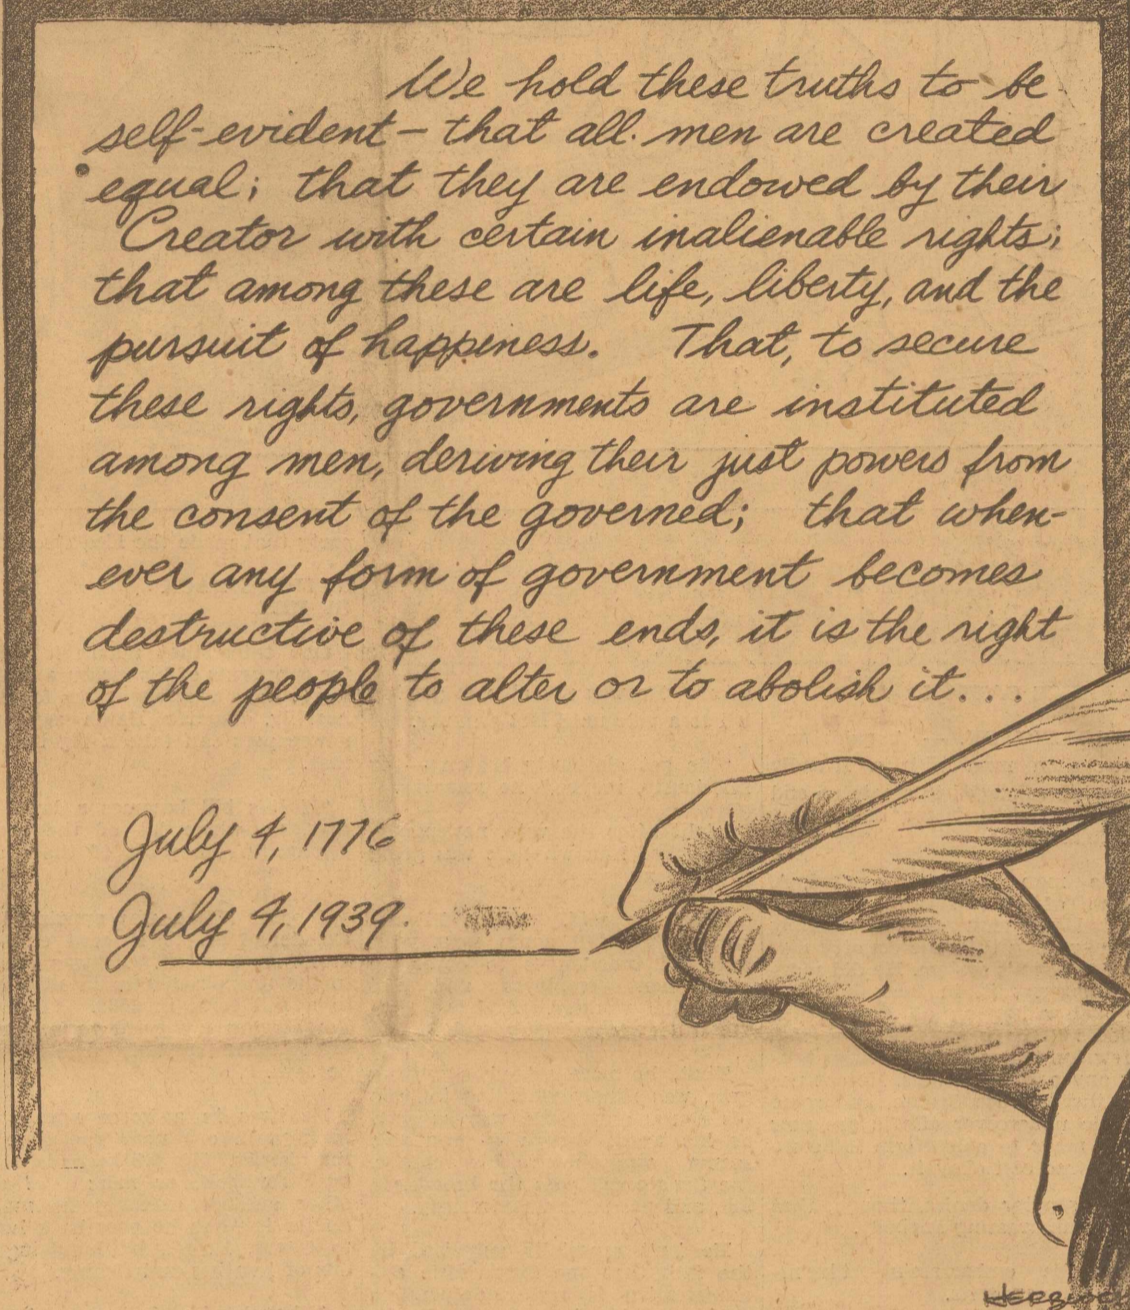 We hold these truths to be
self-evident – that all men are created
equal; that they are endowed by their
Creator with certain inalienable rights;
that among these are life, liberty, and the
pursuit of happiness. That, to secure
these rights, governments are instituted
among men, deriving their just powers from
the consent of the governed; that when-
ever any form of government becomes
destructive of these ends, it is the right
of the people to alter or to abolish it...
July 4, 1776
July 4, 1939.
HERBLOCK